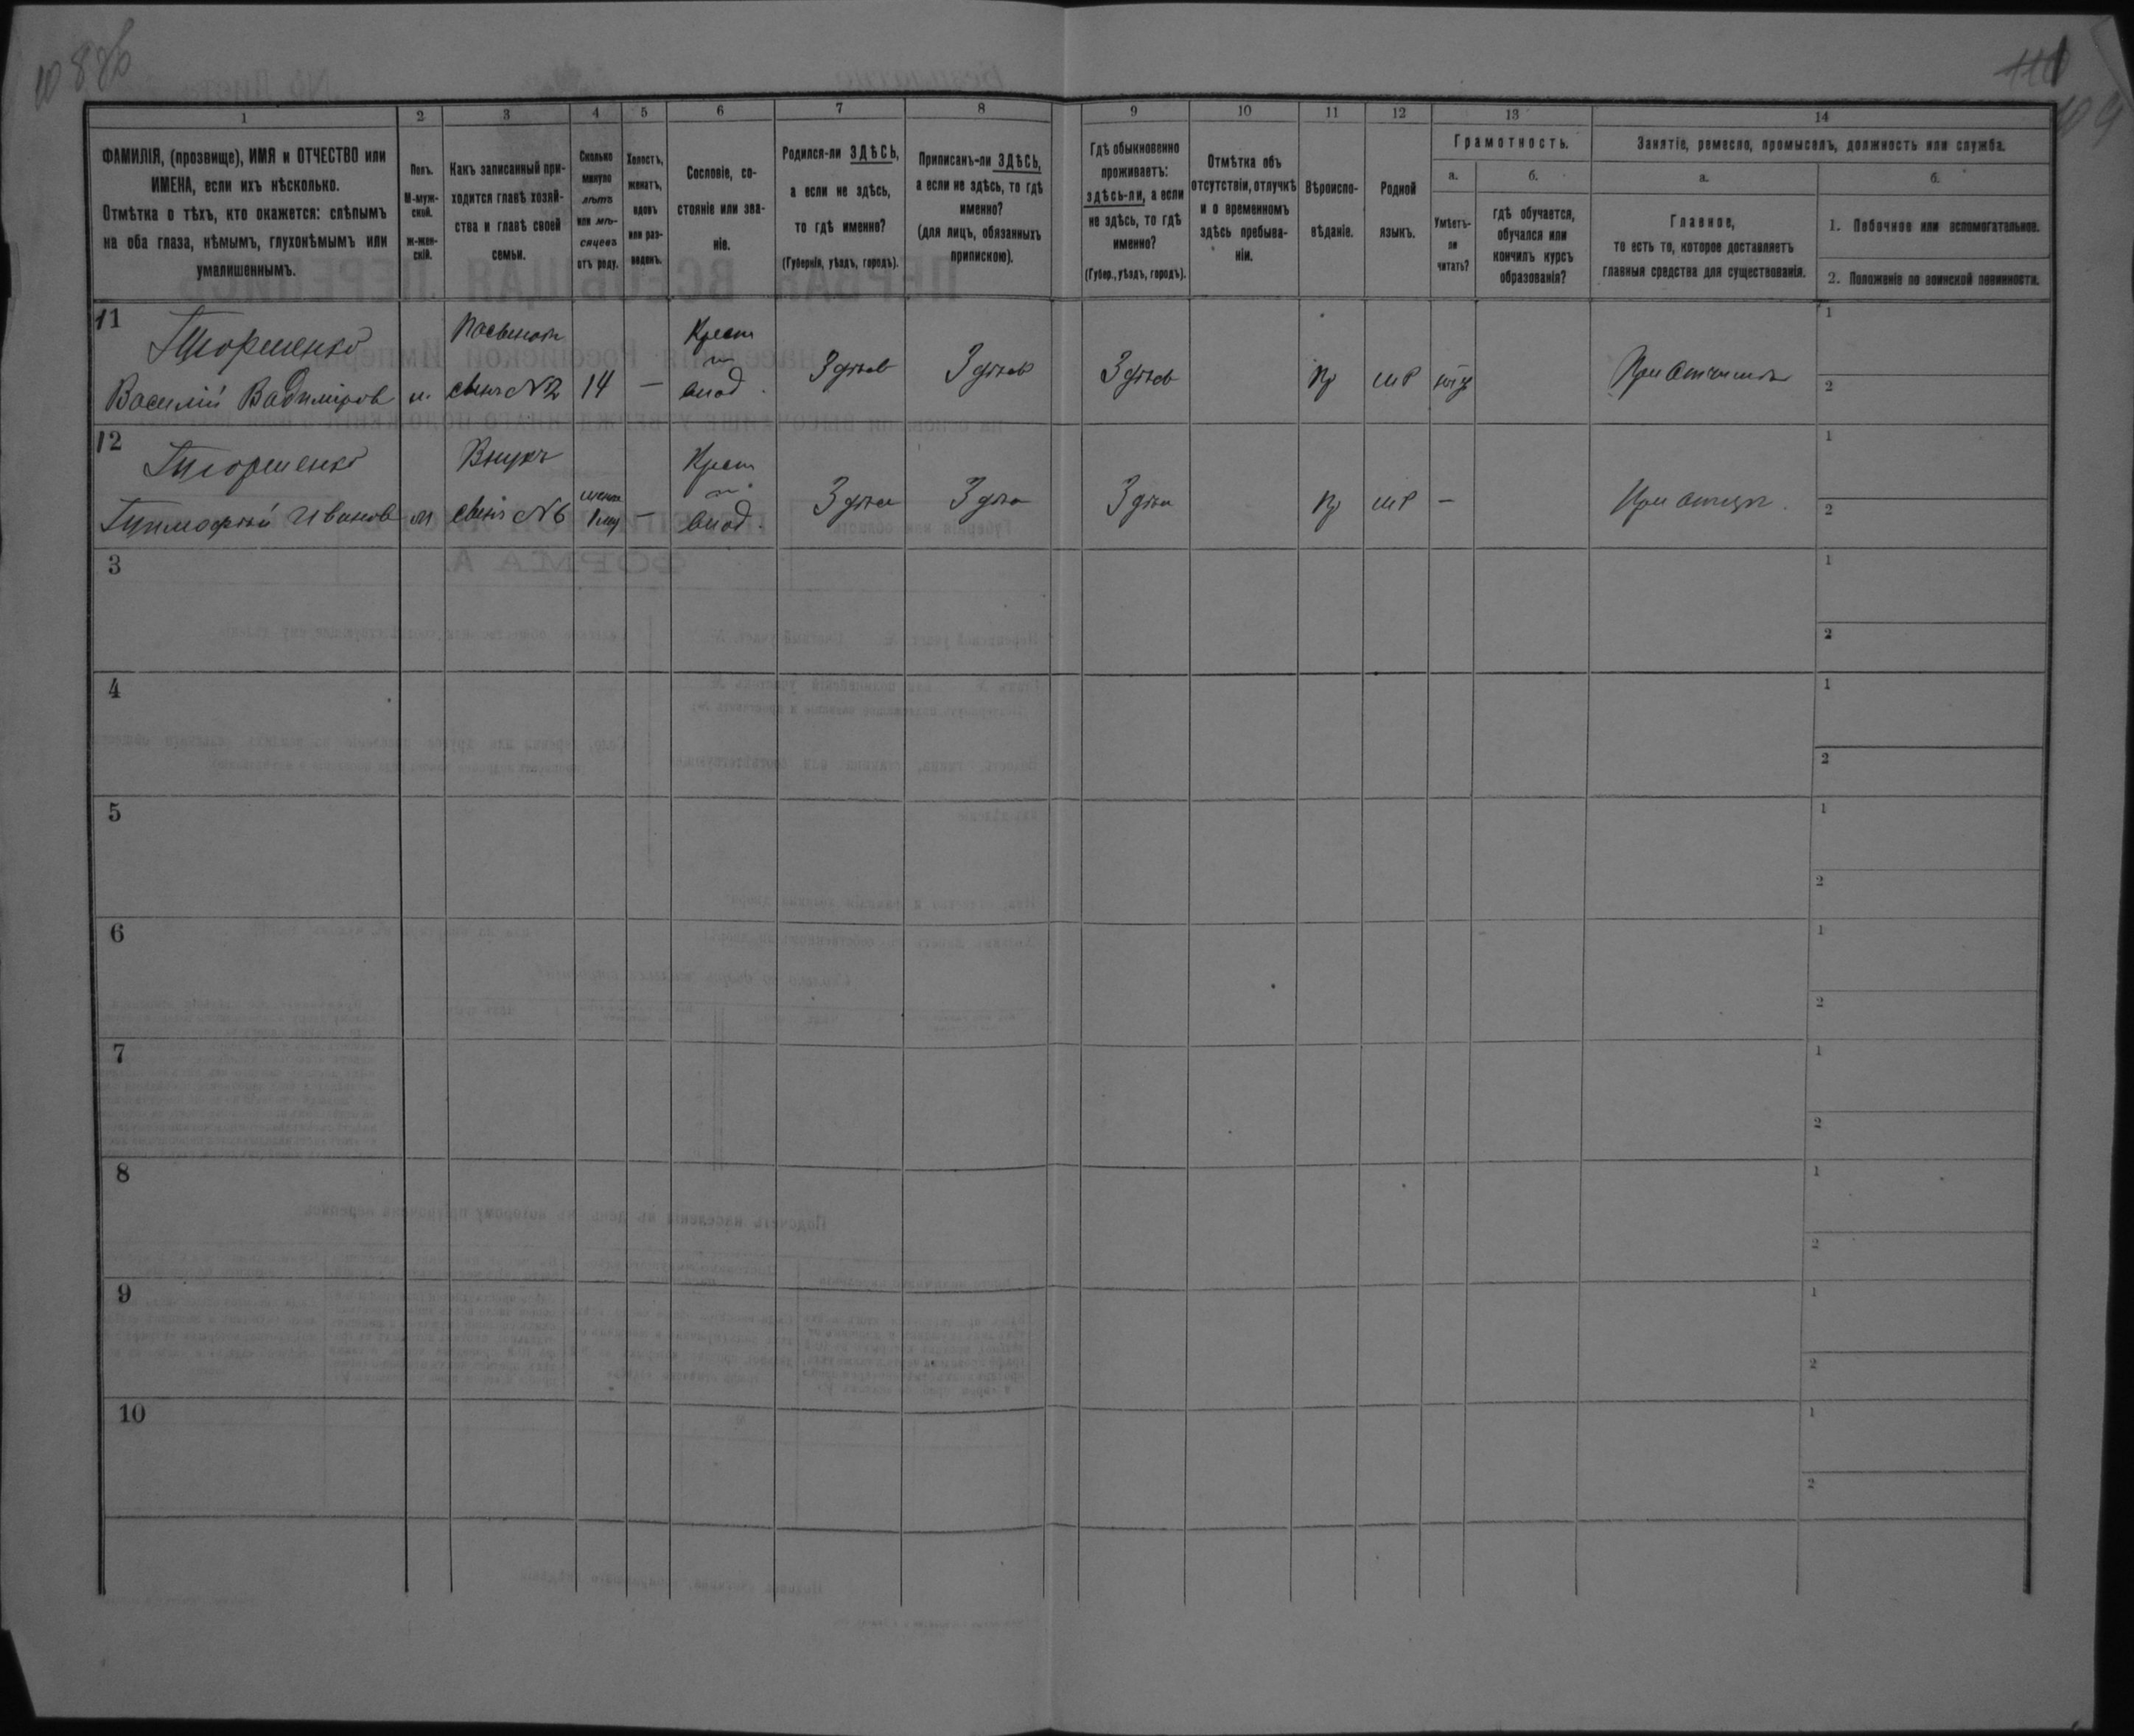 1
2
3
4
5
6
7
8
9
10
11
12
13
14
ФАМИЛІЯ, (прозвище), ИМЯ и ОТЧЕСТВО или
ИМЕНА, если ихъ нѣсколько.
Отмѣтка о тѣхъ, кто окажется: слѣпымъ
на оба глаза, нѣмымъ, глухонѣмымъ или
умалишеннымъ.
Полъ.
М-муж-
ской.
ж-жен-
скій.
Какъ записанный при-
ходится главѣ хозяй-
ства и главѣ своей
семьи.
Сколько
минуло
лѣтъ
или мѣ-
сяцевъ
отъ роду.
Холостъ,
женатъ,
вдовъ
или раз-
веденъ.
Сословіе, со-
стояніе или зва-
ніе.
Родился-ли ЗДѢСЬ,
а если не здѣсь,
то гдѣ именно?
(Губернія, уѣздъ, городъ).
Приписанъ-ли ЗДѢСЬ,
а если не здѣсь, то гдѣ
именно?
(для лицъ, обязанныхъ
припискою).
Гдѣ обыкновенно
проживаетъ:
здѣсь-ли, а если
не здѣсь, то гдѣ
именно?
(Губер., уѣздъ, городъ).
Отмѣтка объ
отсутствіи, отлучкѣ
и о временномъ
здѣсь пребыва-
ніи.
Вѣроиспо-
вѣданіе.
Родной
языкъ.
Грамотность.
а.
Умѣетъ-
ли
читать?
б.
гдѣ обучается,
обучался или
кончилъ курсъ
образованія?
Занятіе, ремесло, промыселъ, должность или служба.
а.
Главное,
то есть то, которое доставляетъ
главныя средства для существованія.
б.
1. Побочное или вспомогательное.
2. Положеніе по воинской повинности.
11
Василій
м.
14
—
Крест
Здѣсь
Здѣсь
Здѣсь
Пр
МР
1
2
12
Тимофѣй Иванов
м
Внукъ
сынъ №6
1 мц
—
Крест
Здѣсь
Здѣсь
Здѣсь
Пр
МР
—
При отцѣ.
1
2
3
1
2
4
1
2
5
1
2
6
1
2
7
1
2
8
1
2
9
1
2
10
1
2